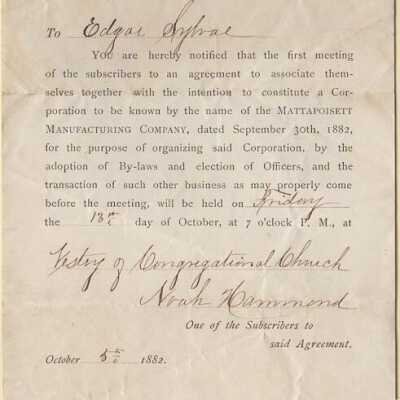 To Edgar Sylvae
You are hereby notified that the first meeting
of the subscribers to an agreement to associate them-
selves together with the intention to constitute a Cor-
poration to be known by the name of the MATTAPOISETT
MANUFACTURING COMPANY, dated September 30th, 1882,
for the purpose of organizing said Corporation, by the
adoption of By-laws and election of Officers, and the
transaction of such other business as may properly come
before the meeting, will be held on Friday
the 13th day of October, at 7 o'clock P. M., at
Vestry of Congregational Church
Noah Hammond
One of the Subscribers to
said Agreement.
October 5th 1882.